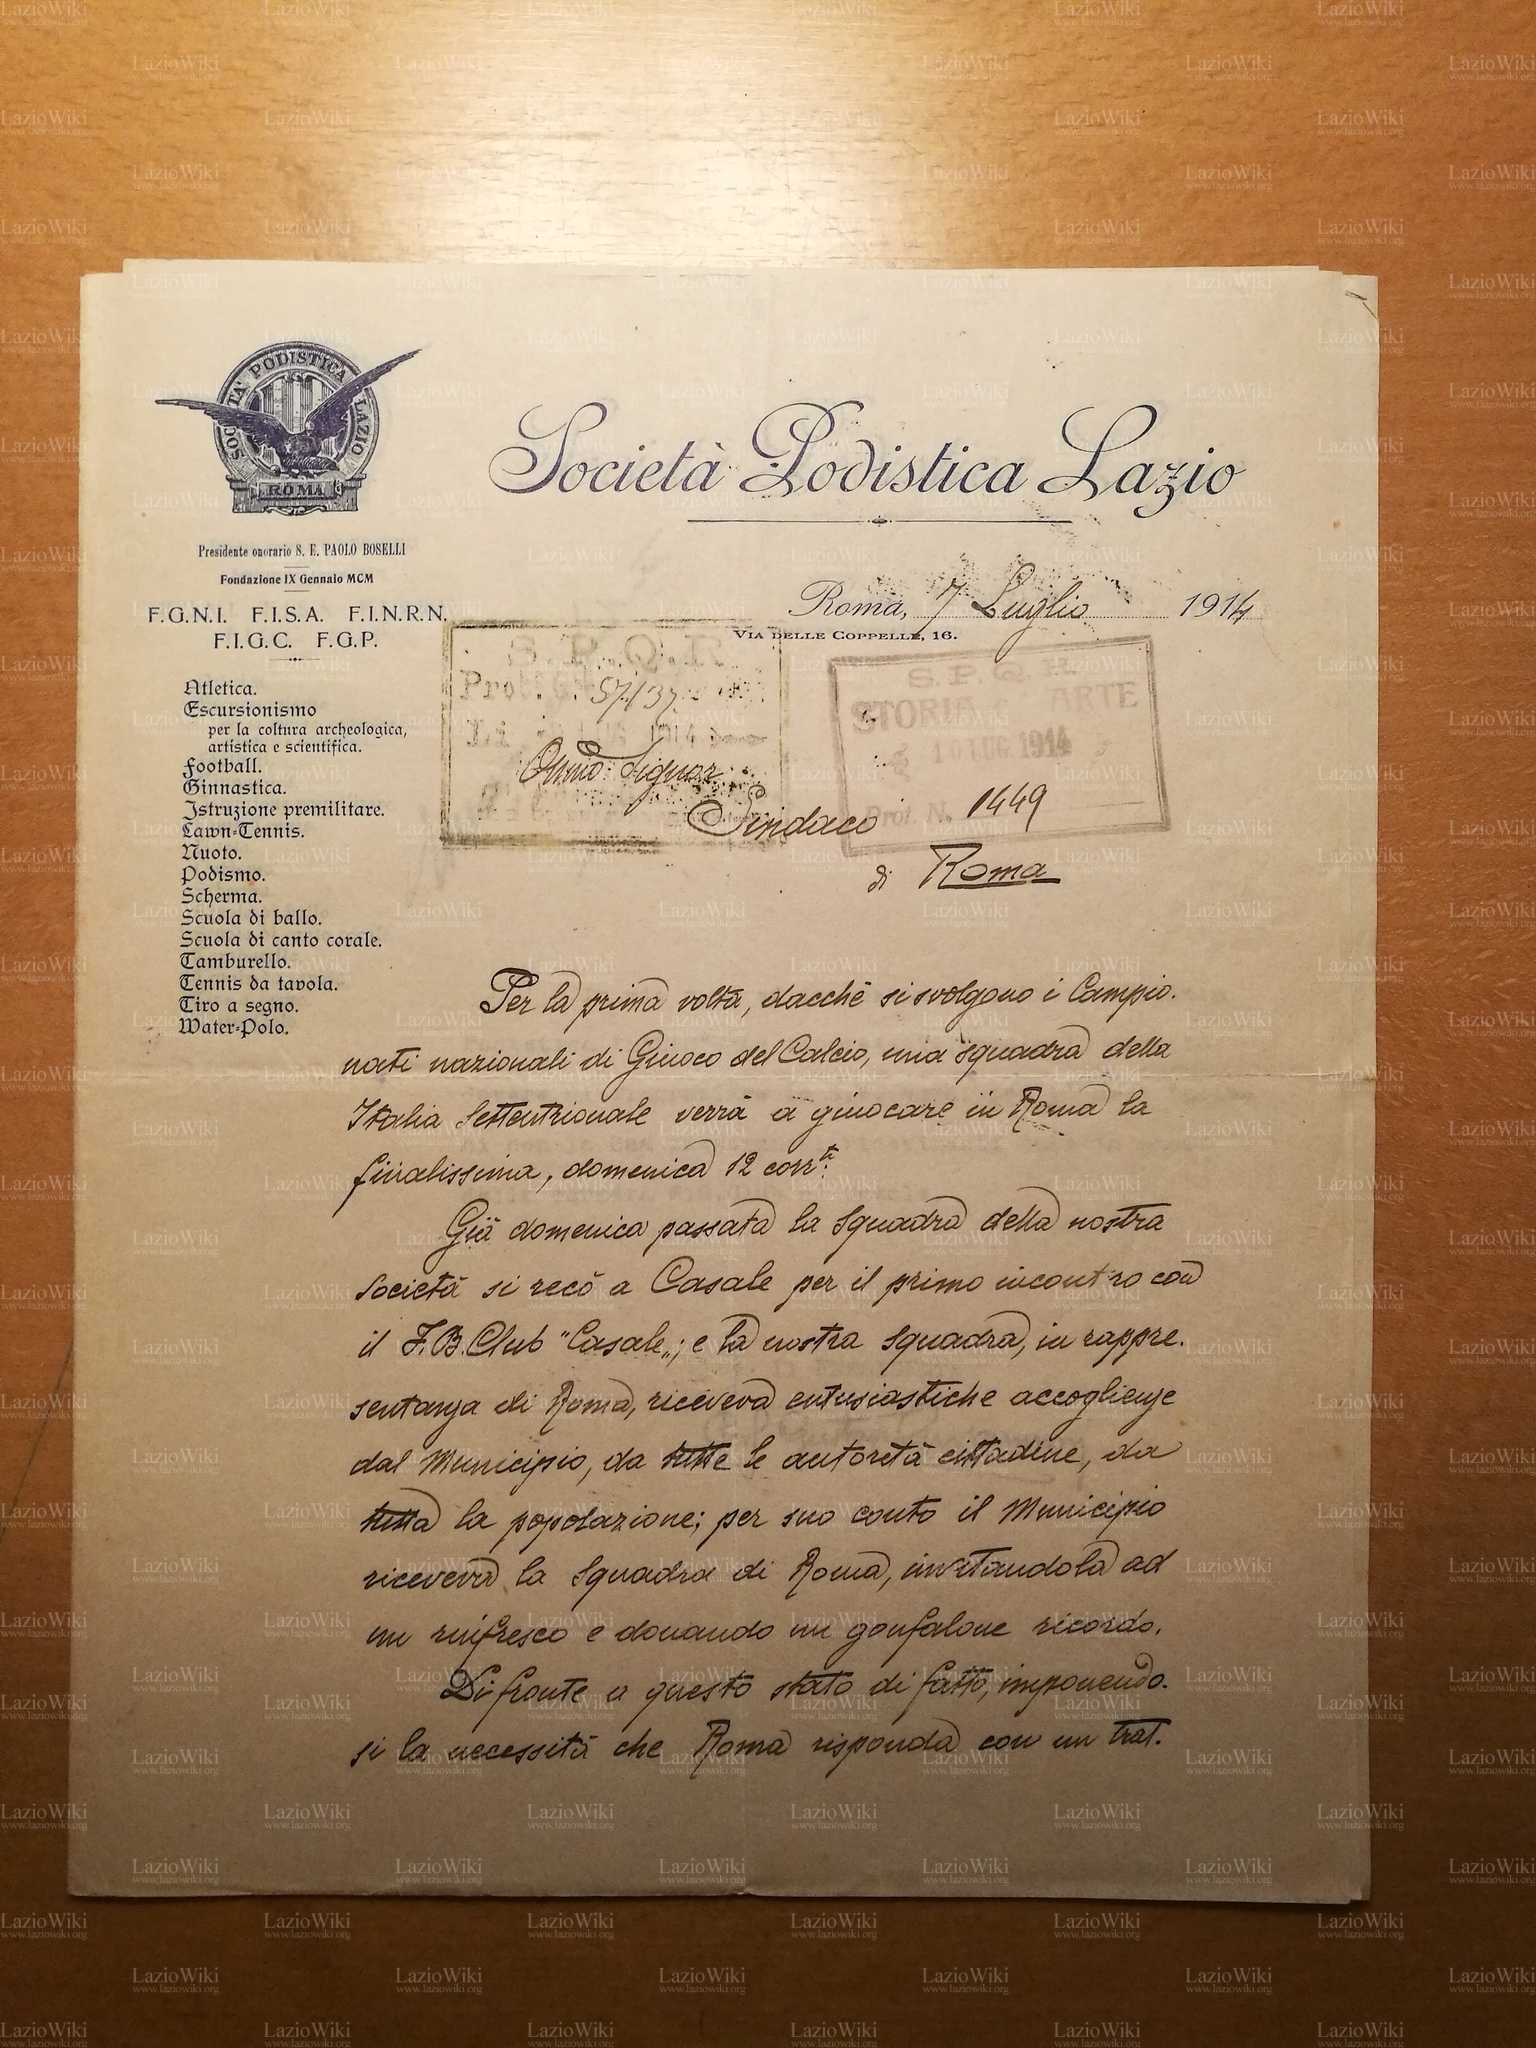 SOCIETA' PODISTICA LAZIO
ROMA
Società Podistica Lazio
Presidente onorario S. E. PAOLO BOSELLI
Fondazione IX Gennaio MCM
F.G.N.I. F.I.S.A. F.I.N.R.N.
F.I.G.C. F.G.P.
Roma, 7 Luglio 1914
VIA DELLE COPPELLE, 16.
Atletica.
Escursionismo
per la coltura archeologica,
artistica e scientifica.
Football.
Ginnastica.
Istruzione premilitare.
Lawn-Tennis.
Nuoto.
Podismo.
Scherma.
Scuola di ballo.
Scuola di canto corale.
Tamburello.
Tennis da tavola.
Tiro a segno.
Water-Polo.
S. P. Q. R.
Prot. 57137
1914
S. P. Q. R.
STORIA ARTE
10 LUG. 1914
Prot. N. 1449
Onmo: Signor
Sindaco
di Roma
Per la prima volta, dacchè si svolgono i Campio-
nati nazionali di Giuoco del Calcio, una squadra della
Italia Settentrionale verrà a giuocare in Roma la
finalissima, domenica 12 corr.te
Già domenica passata la squadra della nostra
Società si recò a Casale per il primo incontro con
il F.B. Club "Casale„; e la nostra squadra, in rappre-
sentanza di Roma, riceveva entusiastiche accoglienze
dal Municipio, da tutte le autoretà cittadine, da
tutta la popolazione; per suo conto il Municipio
riceveva la squadra di Roma, invitandola ad
un rinfresco e donando un gonfalone ricordo.
Di fronte a questo stato di fatto, imponendo-
si la necessità che Roma risponda con un trat-
LazioWiki
www.laziowiki.org